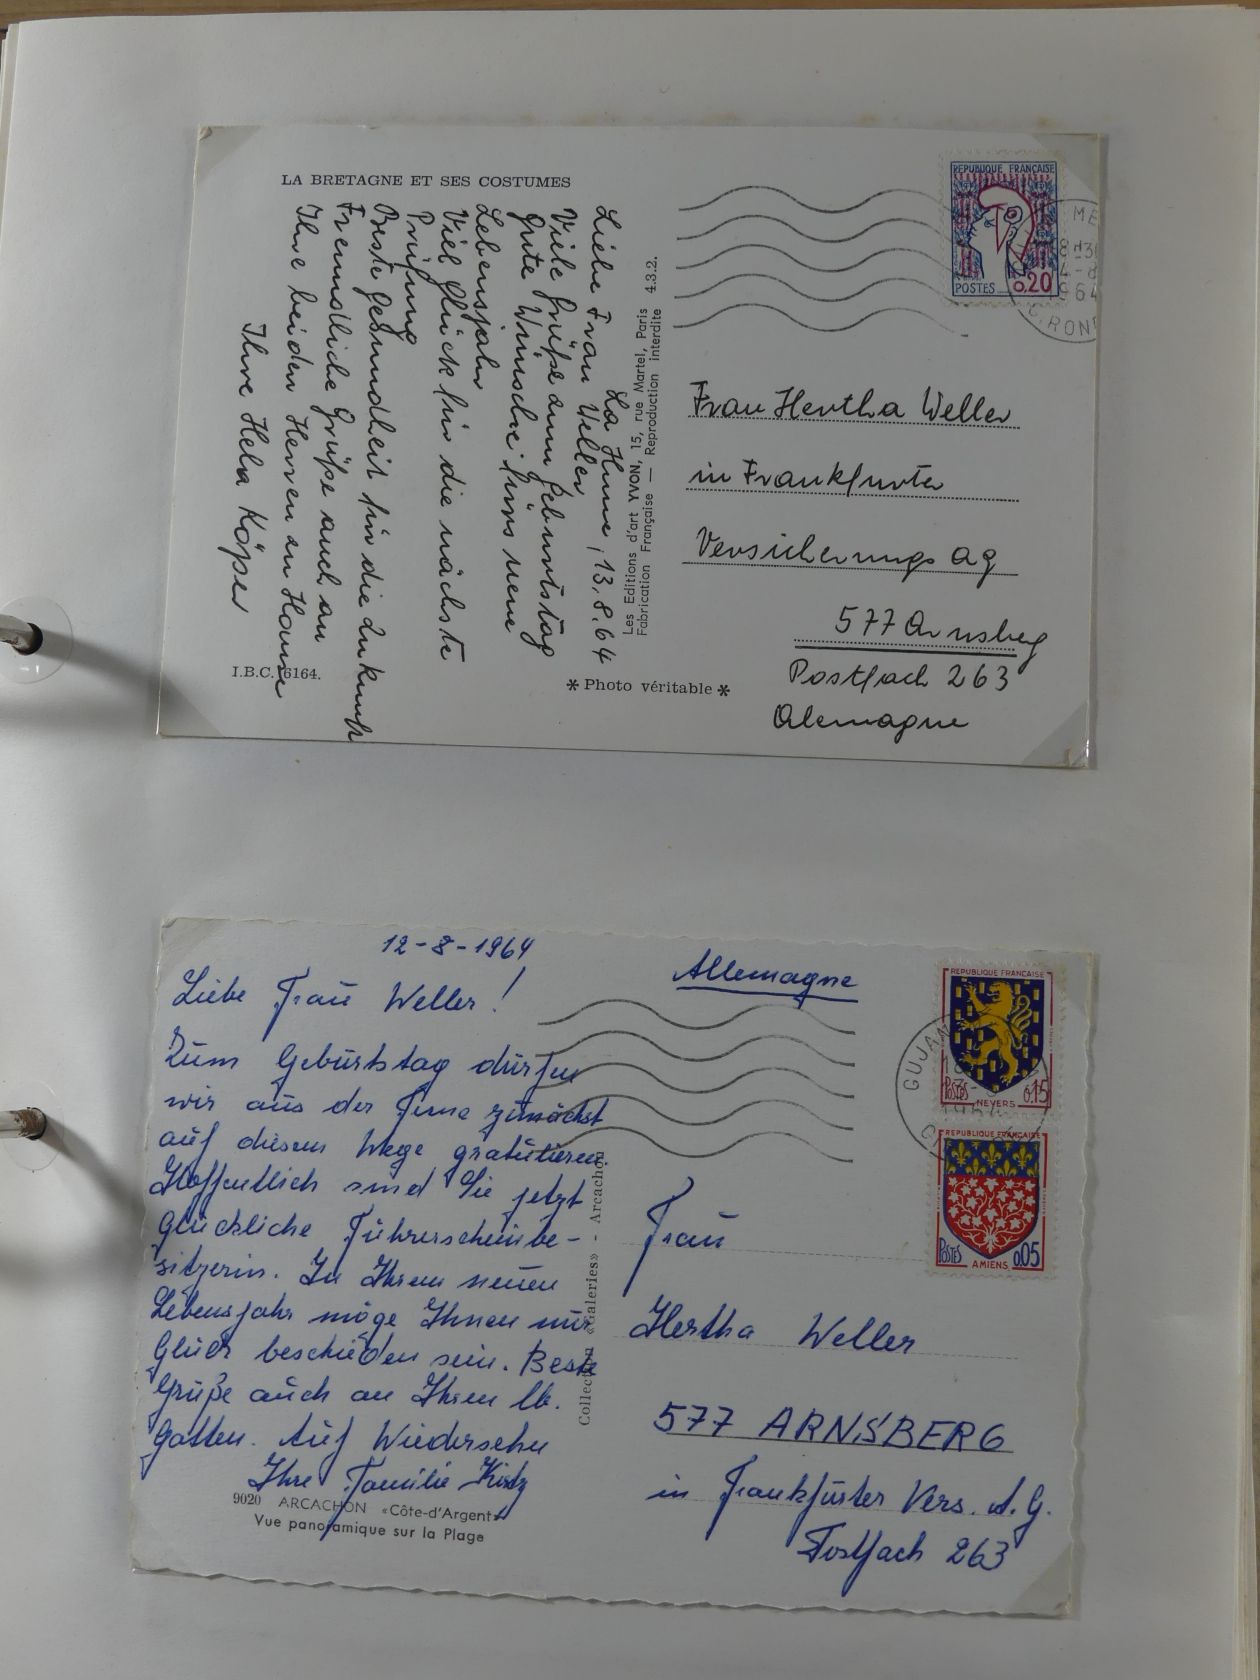 LA BRETAGNE ET SES COSTUMES
La Hume, 13.8.64
Liebe Frau Weller
Viele Grüße zum Geburtstag
Gute Wünsche fürs neue
Lebensjahr
Viel Glück für die nächste
Prüfung
Beste Gesundheit für die Zukunft
Freundliche Grüße auch an
Ihre beiden Herren zu Hause
Ihre Hela Köper
I.B.C. 6164.
Les Editions d'art YVON, 15, rue Martel, Paris 4.3.2.
Fabrication Française — Reproduction interdite
* Photo véritable *
REPUBLIQUE FRANÇAISE
POSTES 0,20
Frau Hertha Weller
in Frankfurter
Versicherungs AG
577 Arnsberg
Postfach 263
Alemagne
12-8-1964
Liebe Frau Weller!
Zum Geburtstag dürfen
wir aus der Ferne zunächst
auf diesem Wege gratulieren.
Hoffentlich sind Sie jetzt
glückliche Führerscheinbe-
sitzerin. In Ihrem neuen
Lebensjahr möge Ihnen nur
Glück beschieden sein. Beste
Grüße auch an Ihren lb.
Gatten. Auf Wiedersehn
Ihre Familie
9020 ARCACHON «Côte-d'Argent»
Vue panoramique sur la Plage
Collection «Galeries» - Arcachon
Allemagne
REPUBLIQUE FRANÇAISE
POSTES NEVERS 0,15
GUJAN
REPUBLIQUE FRANÇAISE
POSTES AMIENS 0,05
Frau
Hertha Weller
577 ARNSBERG
in Frankfurter Vers. A.G.
Postfach 263